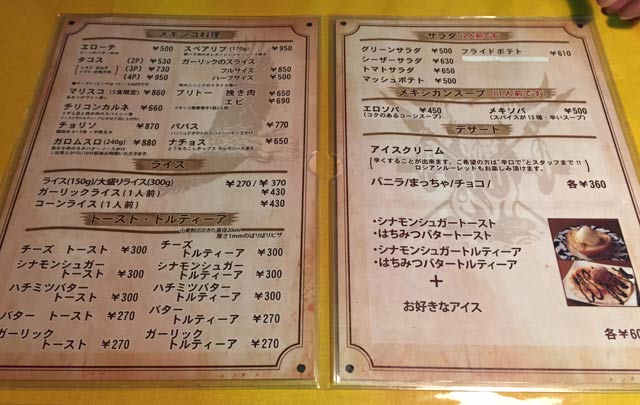 メキシコ料理
エローテ ¥500
タコス (2P) ¥530
(3P) ¥730
(4P) ¥950
マリスコ (5食限定) ¥860
チリコンカルネ ¥660
チョリソ ¥870
ガロムスロ (240g) ¥880
スペアリブ (170g) ¥950
ガーリックのスライム
フルサイズ ¥850
ハーフサイズ ¥500
ブリトー 挽き肉 ¥650
エビ ¥690
パパス ¥770
ナチョス ¥650
ライス
ライス(150g)/大盛りライス(300g) ¥270/¥370
ガーリックライス(1人前) ¥430
コーンライス(1人前) ¥430
トースト・トルティーア
小麦粉でできた直径20cm
厚さ1mmのぱりぱりピザ
チーズ トースト ¥300
シナモンシュガー
トースト ¥300
ハチミツバター
トースト ¥300
バター トースト ¥270
ガーリック
トースト ¥270
チーズ
トルティーア ¥300
シナモンシュガー
トルティーア ¥300
ハチミツバター
トルティーア ¥300
バター
トルティーア ¥270
ガーリック
トルティーア ¥270
サラダ (1人前です)
グリーンサラダ ¥500
シーザーサラダ ¥630
トマトサラダ ¥650
マッシュポテト ¥500
フライドポテト ¥610
メキシカンスープ (1人前です)
エロソパ ¥450
(コクのあるコーンスープ)
メキソパ ¥500
(スパイスが13種・辛いスープ)
デザート
アイスクリーム
(辛くすることが出来ます。ご希望の方は"辛口で"とスタッフまで!!
ロシアンルーレットもお楽しみ頂けます。)
バニラ/まっちゃ/チョコ/ 各¥360
・シナモンシュガートースト
・はちみつバタートースト
・シナモンシュガートルティーア
・はちみつバタートルティーア
+
お好きなアイス
各¥60